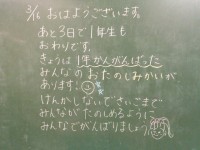 3/6 おはようございます。
あと3日で1年生も
おわりです。
きょうは1年がんばった
みんなのおたのしみかいが
あります。
けんかしないでさいごまで
みんながたのしめるように
みんなでがんばりましょう